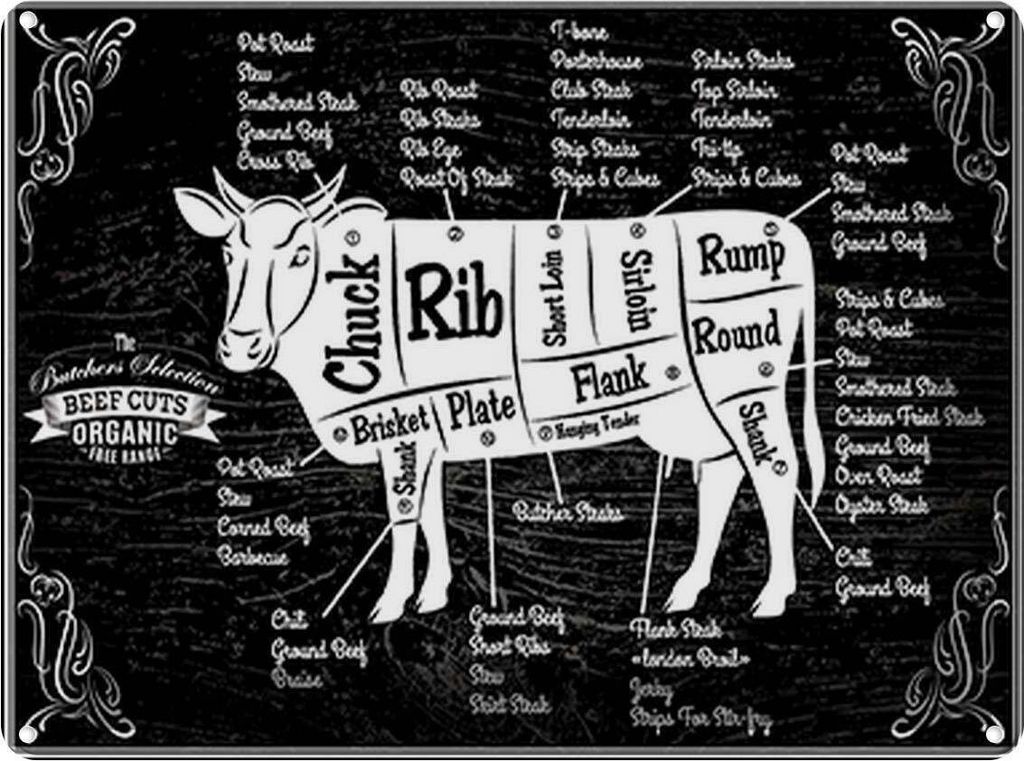 Pot Roast
Stew
Smothered Steak
Ground Beef
Cross Rib
Rib Roast
Rib Steaks
Rib Eye
Roast Of Steak
T-bone
Porterhouse
Club Steak
Tenderloin
Strip Steaks
Strips & Cubes
Sirloin Steaks
Top Sirloin
Tenderloin
Tri-tip
Strips & Cubes
Pot Roast
Stew
Smothered Steak
Ground Beef
Chuck
Rib
Short Loin
Sirloin
Rump
Round
Flank
Brisket
Plate
Hanging Tender
Shank
Shank
Strips & Cubes
Pot Roast
Stew
Smothered Steak
Chicken Fried Steak
Ground Beef
Oven Roast
Oyster Steak
The
Butchers Selection
BEEF CUTS
ORGANIC
FREE RANGE
Pot Roast
Stew
Corned Beef
Barbecue
Butcher Steaks
Chili
Ground Beef
Chili
Ground Beef
Braise
Ground Beef
Short Ribs
Stew
Skirt Steak
Flank Steak
«london Broil»
Jerky
Strips For Stir-fry